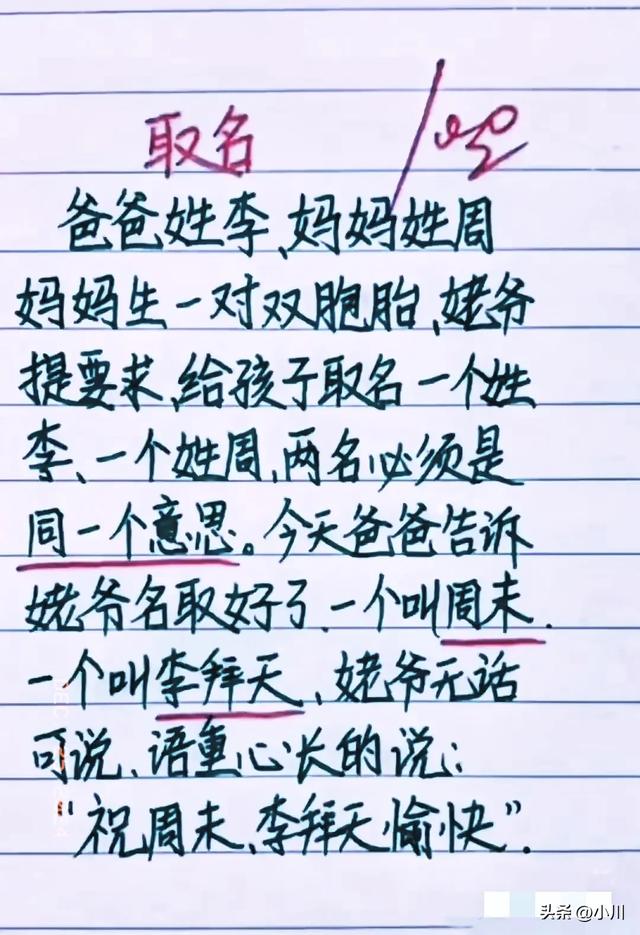 取名
爸爸姓李、妈妈姓周
妈妈生一对双胞胎、姥爷
提要求、给孩子取名一个姓
李、一个姓周,两名必须是
同一个意思。今天爸爸告诉
姥爷名取好了、一个叫周末.
一个叫李拜天、姥爷无话
可说、语重心长的说:
“祝周末、李拜天愉快”.
头条 @小川